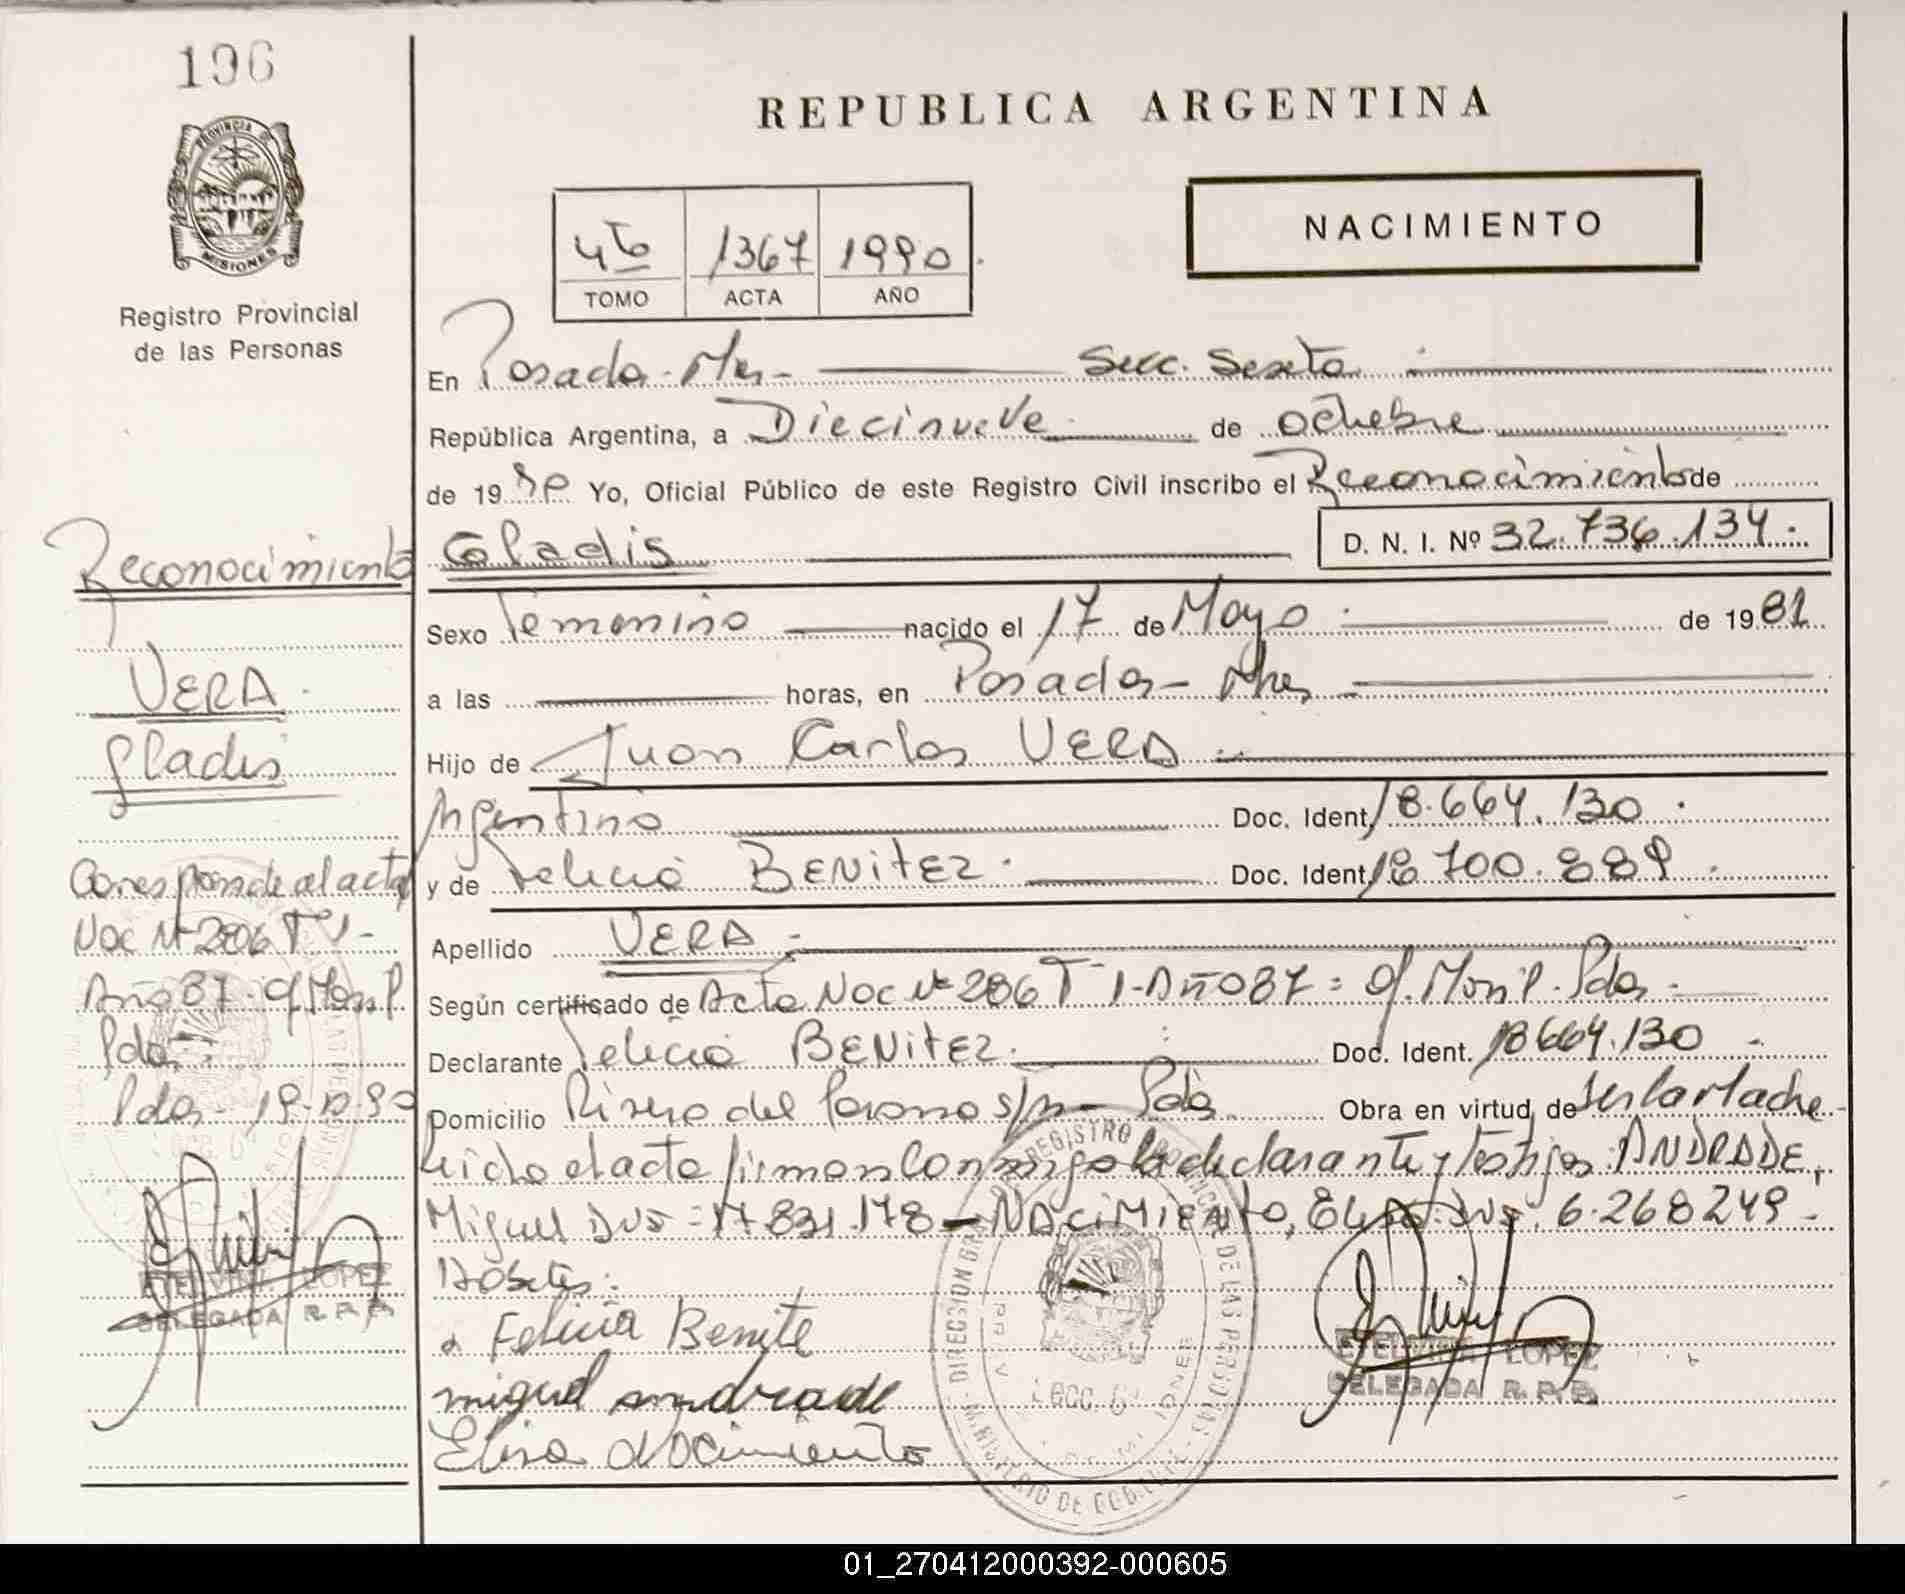 196
PROVINCIA DE
MISIONES
Registro Provincial
de las Personas
REPUBLICA ARGENTINA
NACIMIENTO
4to 1367 1990
TOMO ACTA AÑO
En Posadas. Mnes- Secc. Sexta
República Argentina, a Diecinueve de octubre
de 1990 Yo, Oficial Público de este Registro Civil inscribo el Reconocimiento de
Gladis D. N. I. Nº 32.736.134.
Sexo Femenino nacido el 17 de Mayo de 1981
a las horas, en Posadas- Mnes
Hijo de Juan Carlos VERA
Argentino Doc. Ident. 18.664.130
y de Felicia BENITEZ Doc. Ident. 18.700.889
Apellido VERA
Según certificado de Acta Nac Nº 286 Tº 1-Año 87 = of. Mon P. Pdas-
Declarante Felicia BENITEZ. Doc. Ident. 18664.130
Domicilio Rivera del Parana s/n- Pdas Obra en virtud de ser la Madre
Leido el acta firman conmigo la declarante y testigos: ANDRADE,
Miguel DNI=17.831.178- NACIMIENTO, Elisa DNI. 6.268249-
a Felicia Benite
miguel andrade
Elisa Nacimiento
ETELVINA LOPEZ
DELEGADA R.P.P.
Reconocimiento
VERA
Gladis
Corresponde al acta
Nac Nº 286 Tº 1-
Año 87. of Mon P.
Pdas
Pdas- 19-10-90
ETELVINA LOPEZ
DELEGADA R.P.P.
01_270412000392-000605